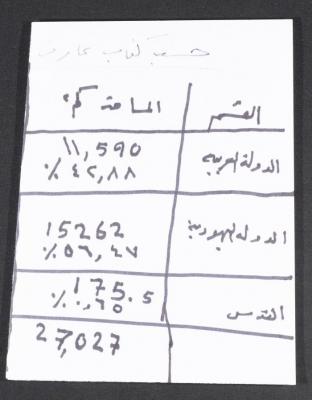 حسب كتاب عارف
القسم المساحة كم²
الدولة العربية 11,590
٪٤٢,٨٨
الدولة اليهودية 15262
٪٥٦,٤٧
القدس 175.5
٪٠,٦٥
27,027